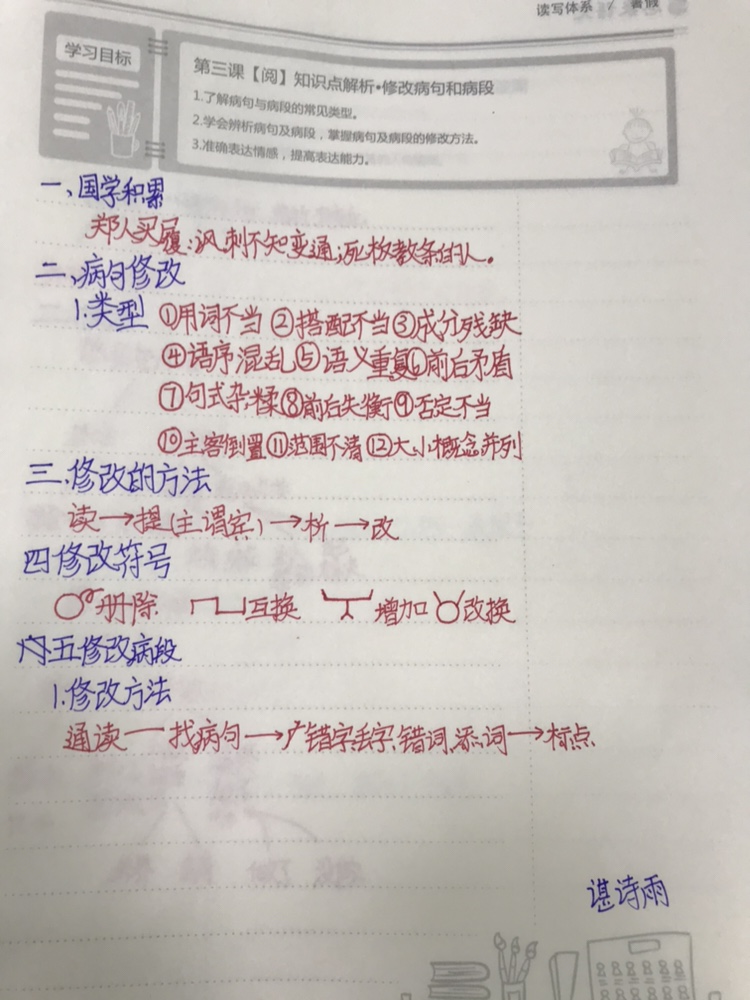 读写体系 / 暑假
学习目标
第三课【阅】知识点解析•修改病句和病段
1.了解病句与病段的常见类型。
2.学会辨析病句及病段，掌握病句及病段的修改方法。
3.准确表达情感，提高表达能力。
一、国学积累
郑人买履：讽刺不知变通，死板教条的人。
二、病句修改
1.类型 ①用词不当 ②搭配不当 ③成分残缺
④语序混乱 ⑤语义重复 ⑥前后矛盾
⑦句式杂糅 ⑧前后失衡 ⑨否定不当
⑩主客倒置 ⑪范围不清 ⑫大、小概念并列
三.修改的方法
读→提(主谓宾)→析→改
四修改符号
删除 互换 增加 改换
五修改病段
1.修改方法
通读—找病句→错字、丢字、错词、添词→标点
谌诗雨